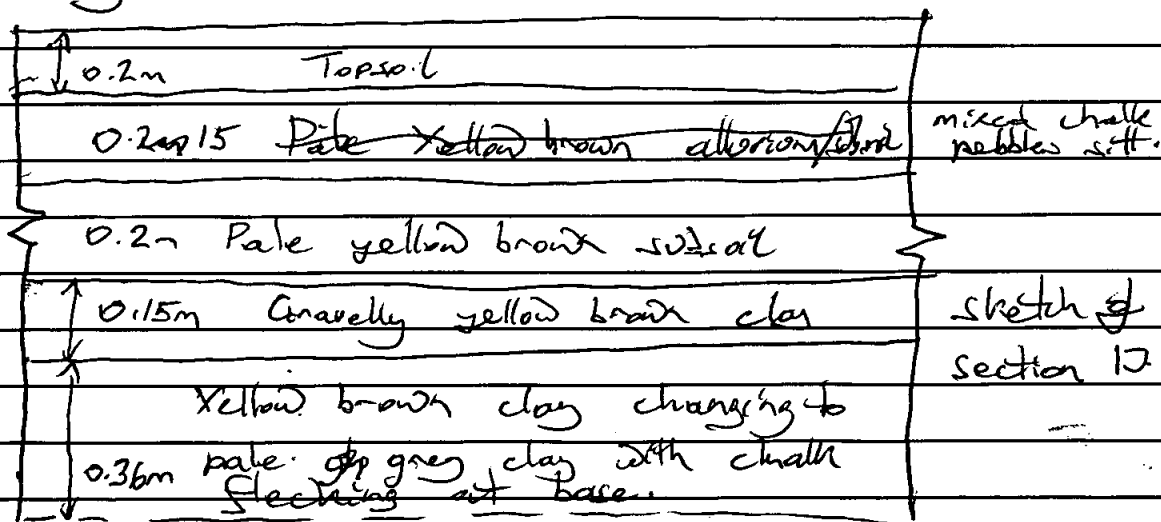 0.2m Topsoil
0.15 Pale Yellow brown alluvium
mixed chalk
pebbles silt.
0.2m Pale yellow brown subsoil
0.15m Gravelly yellow brown clay
sketch of
section
Yellow brown clay changing to
0.36m pale grey clay with chalk
flecking at base.